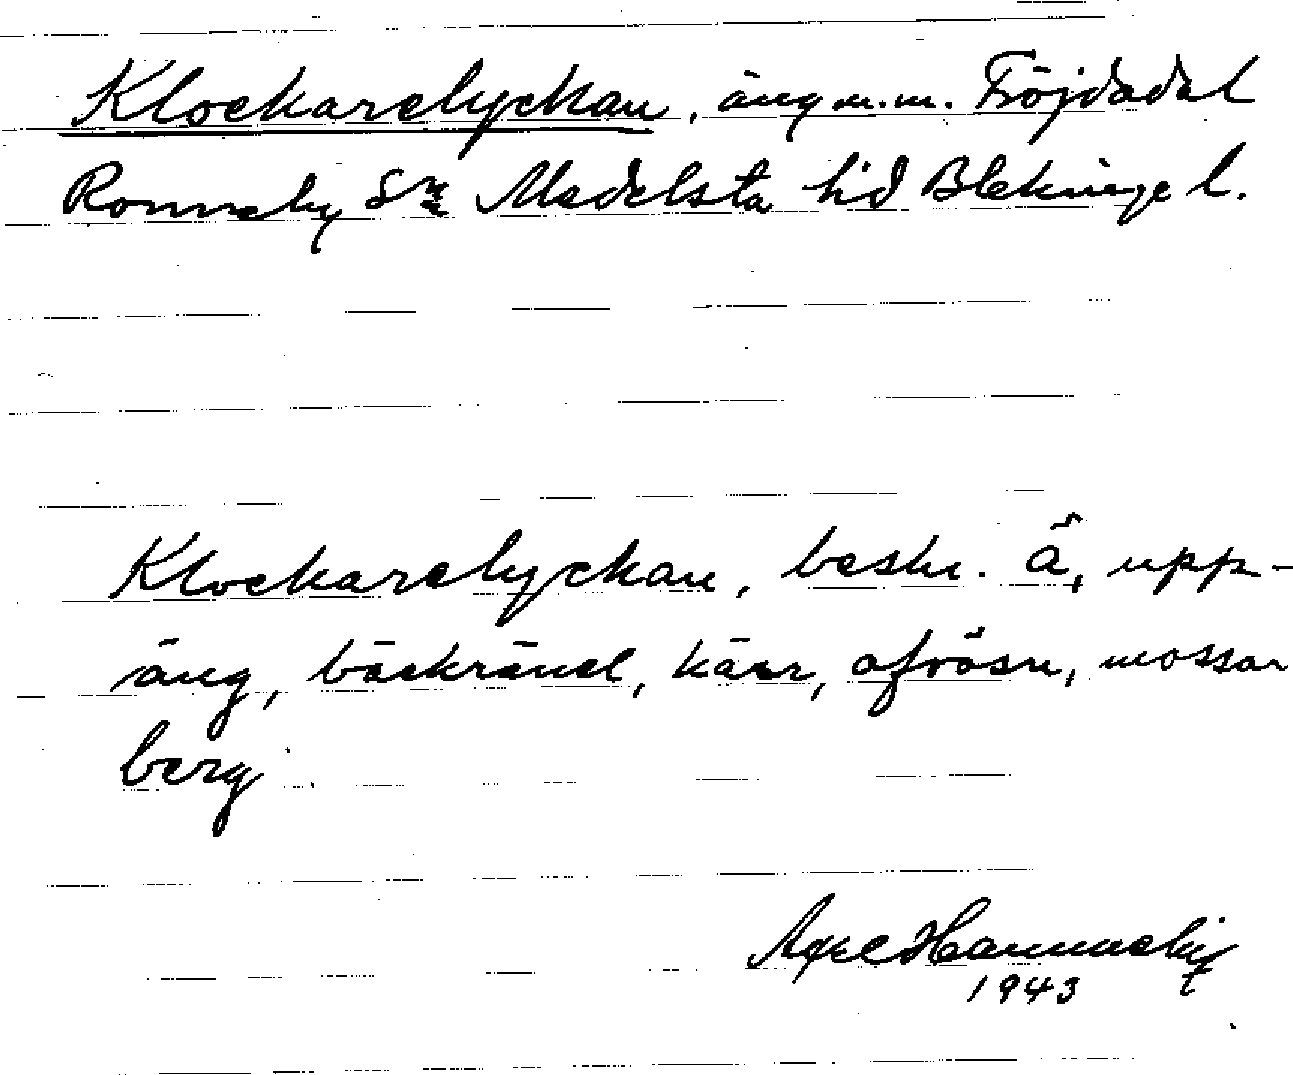 Klockarelyckan, äng m.m. Fröjdadal
Ronneby Sn Medelsta hd Blekinge l.
Klockarelyckan, beskr. Å, upp-
äng, bäckränel, kärr, ofrösn, mossar
berg
Axel
1943